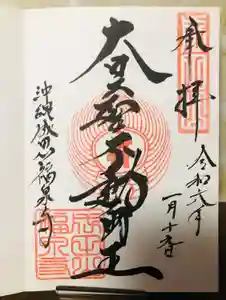 奉拝
令和六年
一月
大日大聖不動明王
沖縄成田山福泉寺